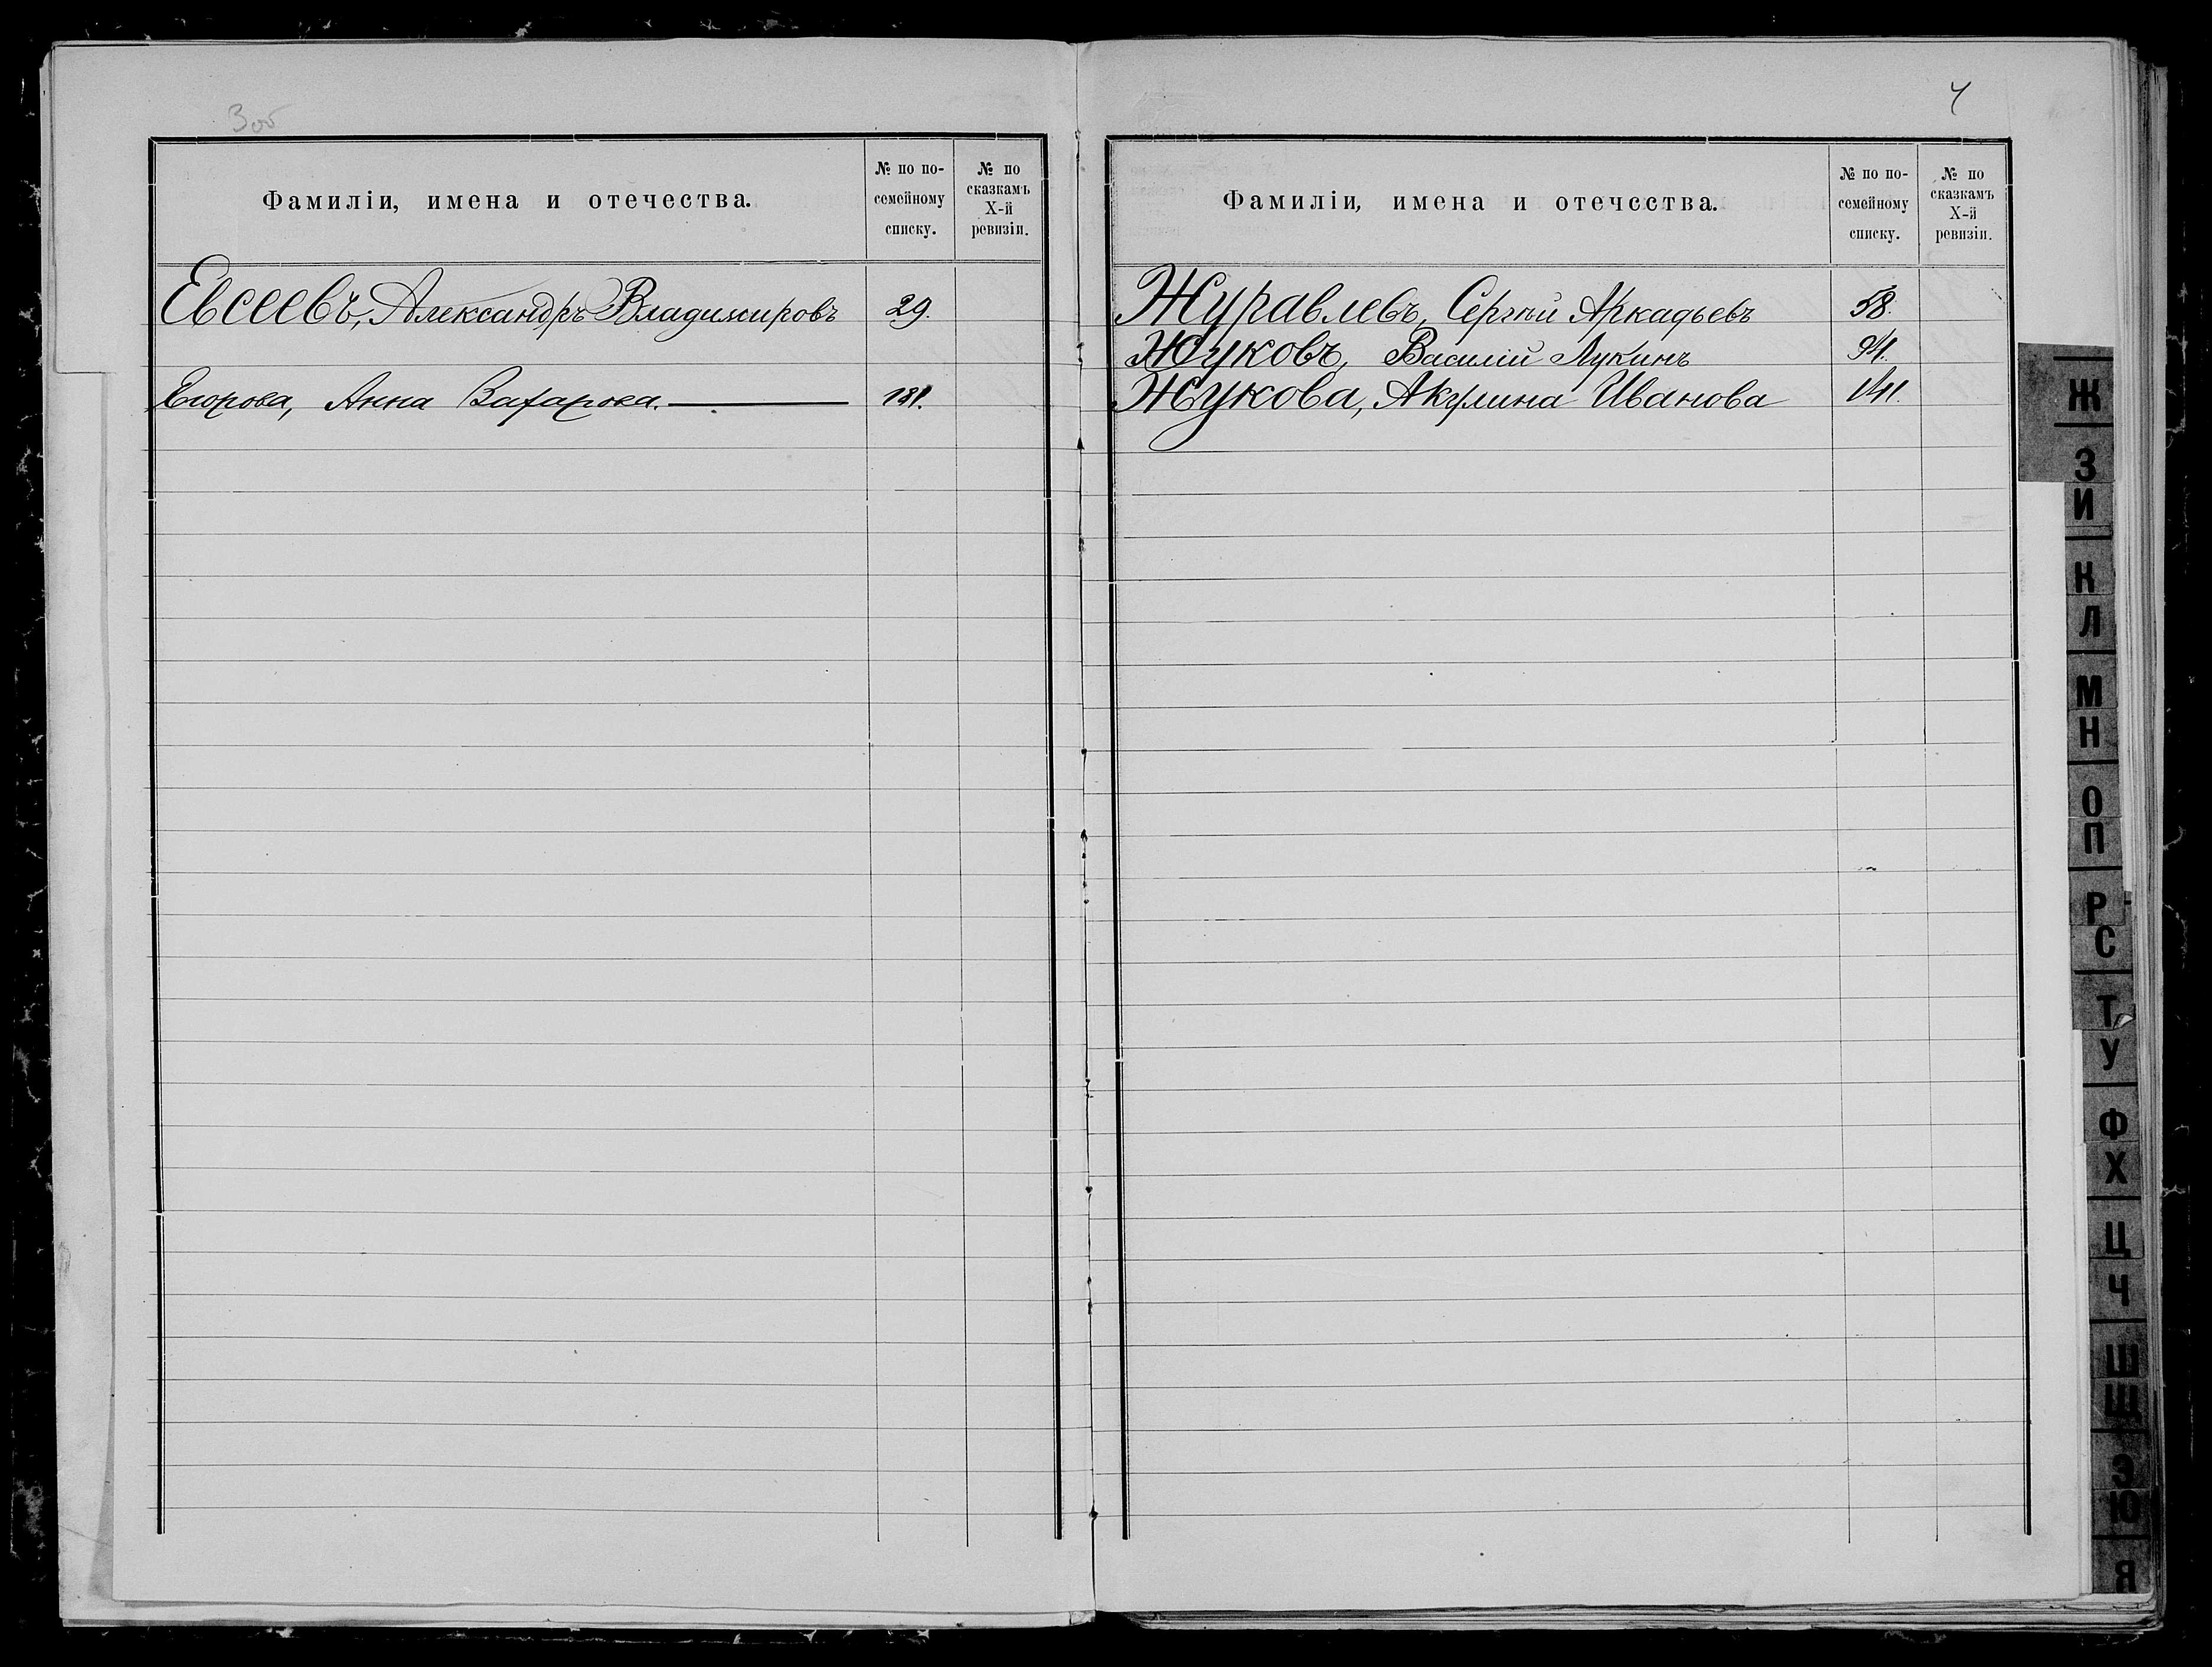 3об
Фамиліи, имена и отечества.
№ по по-
семейному
списку.
№ по
сказкамъ
X-й
ревизіи.
Евсеевъ, Александръ Владимировъ 29.
Егорова, Анна Захарова. 181.
4
Фамиліи, имена и отечества.
№ по по-
семейному
списку.
№ по
сказкамъ
X-й
ревизіи.
Журавлевъ, Сергѣй Аркадьевъ 58.
Жуковъ, Василій Лукинъ 94.
Жукова, Акулина Иванова 141.
Ж
З
И
К
Л
М
Н
О
П
Р
С
Т
У
Ф
Х
Ц
Ч
Ш
Щ
Э
Ю
Я